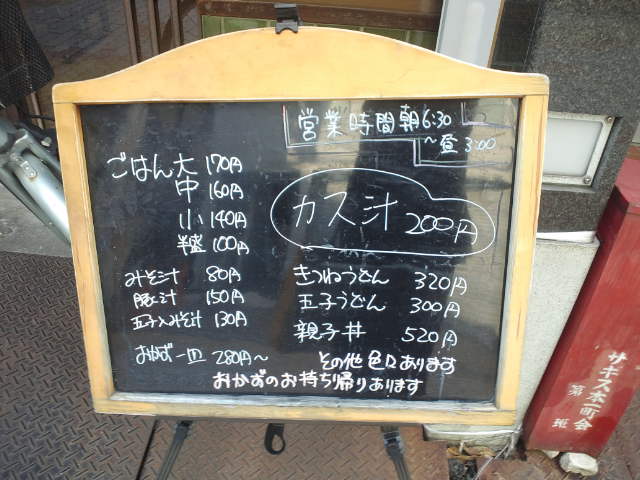 営業時間朝6:30
～昼3:00
ごはん大 170円
中 160円
小 140円
半盛 100円
カス汁 200円
みそ汁 80円
豚汁 150円
玉子入みそ汁 130円
おかず一皿 280円～
きつねうどん 320円
玉子うどん 300円
親子丼 520円
その他色々あります
おかずのお持ち帰りあります
町会
第 班